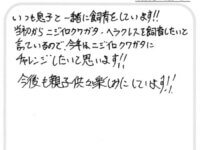 いつも息子と一緒に飼育をしています!!
当初からニジイロクワガタ・ヘラクレスを飼育したいと
言っているので、今年はニジイロクワガタに
チャレンジしたいと思います!!
今後も親子供々楽しみにしています!!